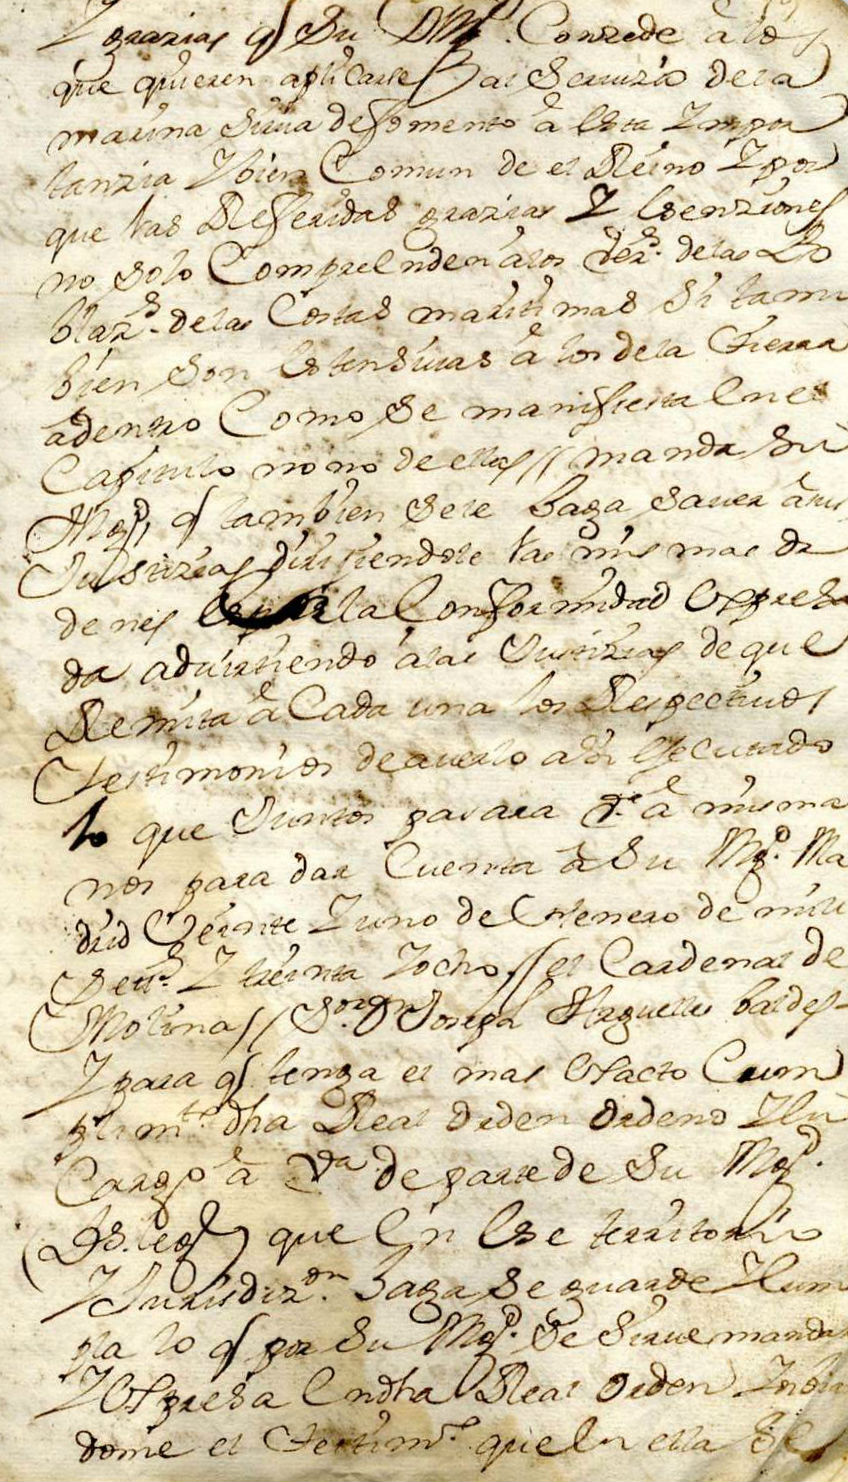 Y grazias q Su Mgd. Conzede a los
que quieren aplicarse al Servizio de la
marina sirva de fomento a esta Impor
tanzia Y bien Comun de el Reino Y por
que las Refferidas grazias Y esenziones
no solo Comprelenden a los de las Po
blazs. de las Costas maritimas si tam
bien son estensivas a los de la tierra
adentro Como se manifiesta en el
Capitulo nono de ellas // manda su
Mgd. q tambien se le haga saver a sus
Justizias dirijiendole las mismas or
denes la Conformidad espresa
da advirtiendo a las Justizias de que
Remita a Cada una los Respectivos
testimonios de averlo asi ejecutado
lo que Juntos pasara Vd. a mis ma
nos para dar Cuenta a Su Mgd. Ma
drid Veinte Y uno de henero de mill
Settos. Y treinta Y ocho // el Cardenal de
Molina // Sor. Dn Joseph Arguelles baldes
Y para q tenga el mas esacto Cum
plimto. dha Real orden ordeno Y en
Cargo a Va. de parte de Su Mgd.
(Ds. legd) que en ese territorio
Y Jurisdizon. haga se guarde Y cum
pla lo q por Su Mgd. se sirve mandar
Y espresa en dha Real orden
dome el testimo. que en ella se